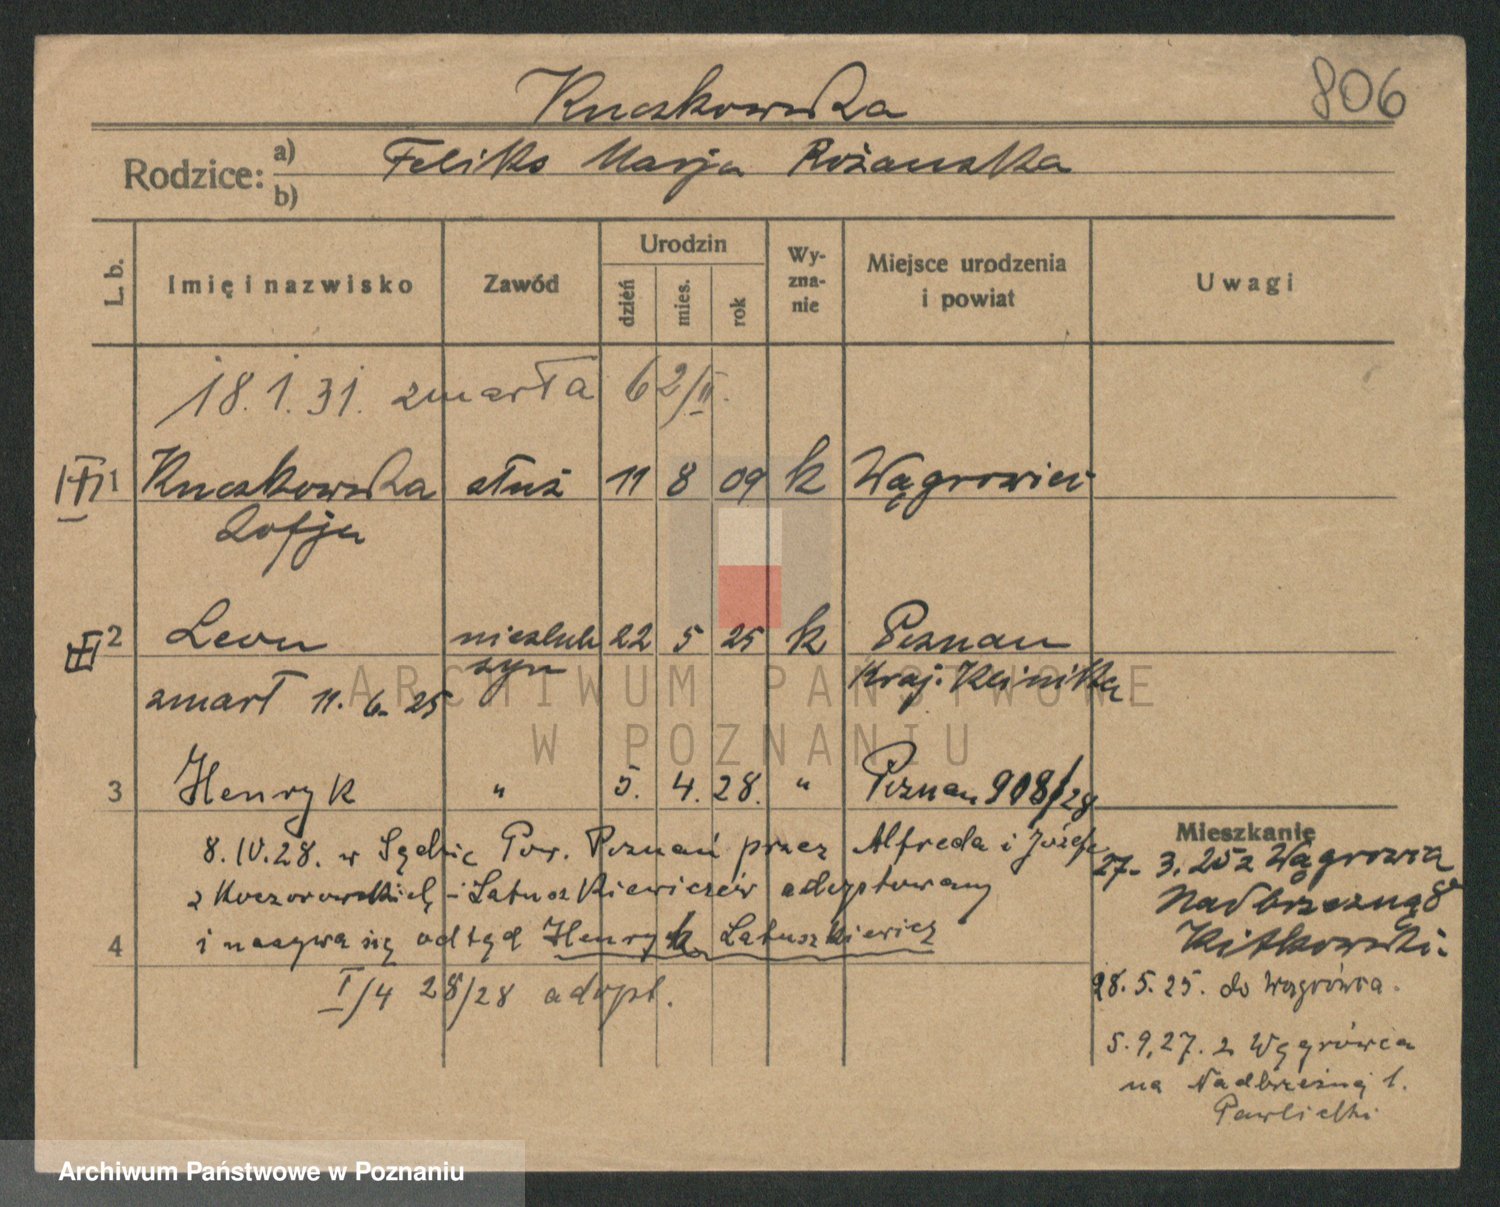 806
Kuczkowska
Rodzice: a) b)
Feliks Marja Różańska
L. b.
Imię i nazwisko
Zawód
Urodzin
dzień
mies.
rok
Wy-
zna-
nie
Miejsce urodzenia
i powiat
Uwagi
18.1.31. zmarła 62/II.
1 Kuczkowska służ 11 8 09 k Wągrowiec
Zofja
2 Leon nieślub 22 5 25 k Poznan
syn Kraj. Klinika
zmarł 11. 6. 25
3 Henryk " 5. 4. 28. " Poznan 908/28
8.IV.28. w Sądzie Pow. Poznań przez Alfreda i Józefę
z Koczorowskich - Latuszkiewiczów adoptowany
4 i nazywa się odtąd Henryk Latuszkiewicz
I/4 28/28 adopt.
Mieszkanie
27. 3. 25 z Wągrowca
Nadbrzeżną 8
Kitkowski.
28. 5. 25. do Wągrówca.
5. 9. 27. z Wągrówca
na Nadbrzeżną 1.
Pawlicki
ARCHIWUM PAŃSTWOWE
W POZNANIU
Archiwum Państwowe w Poznaniu